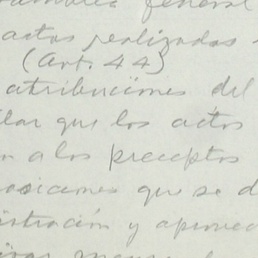 general
actos realizados
(Art. 44)
atribuciones del
lar que los actos
n a los preceptos
osiciones que se d
istración y aprovec